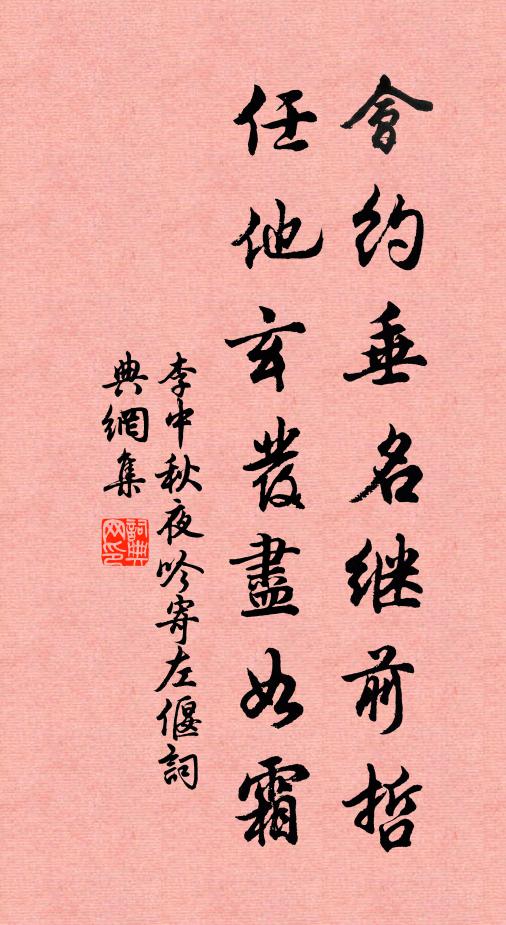 會約垂名継前哲
任他玄發盡如霜
李中秋夜吟寄左偃詞
典網集
詞典
网印